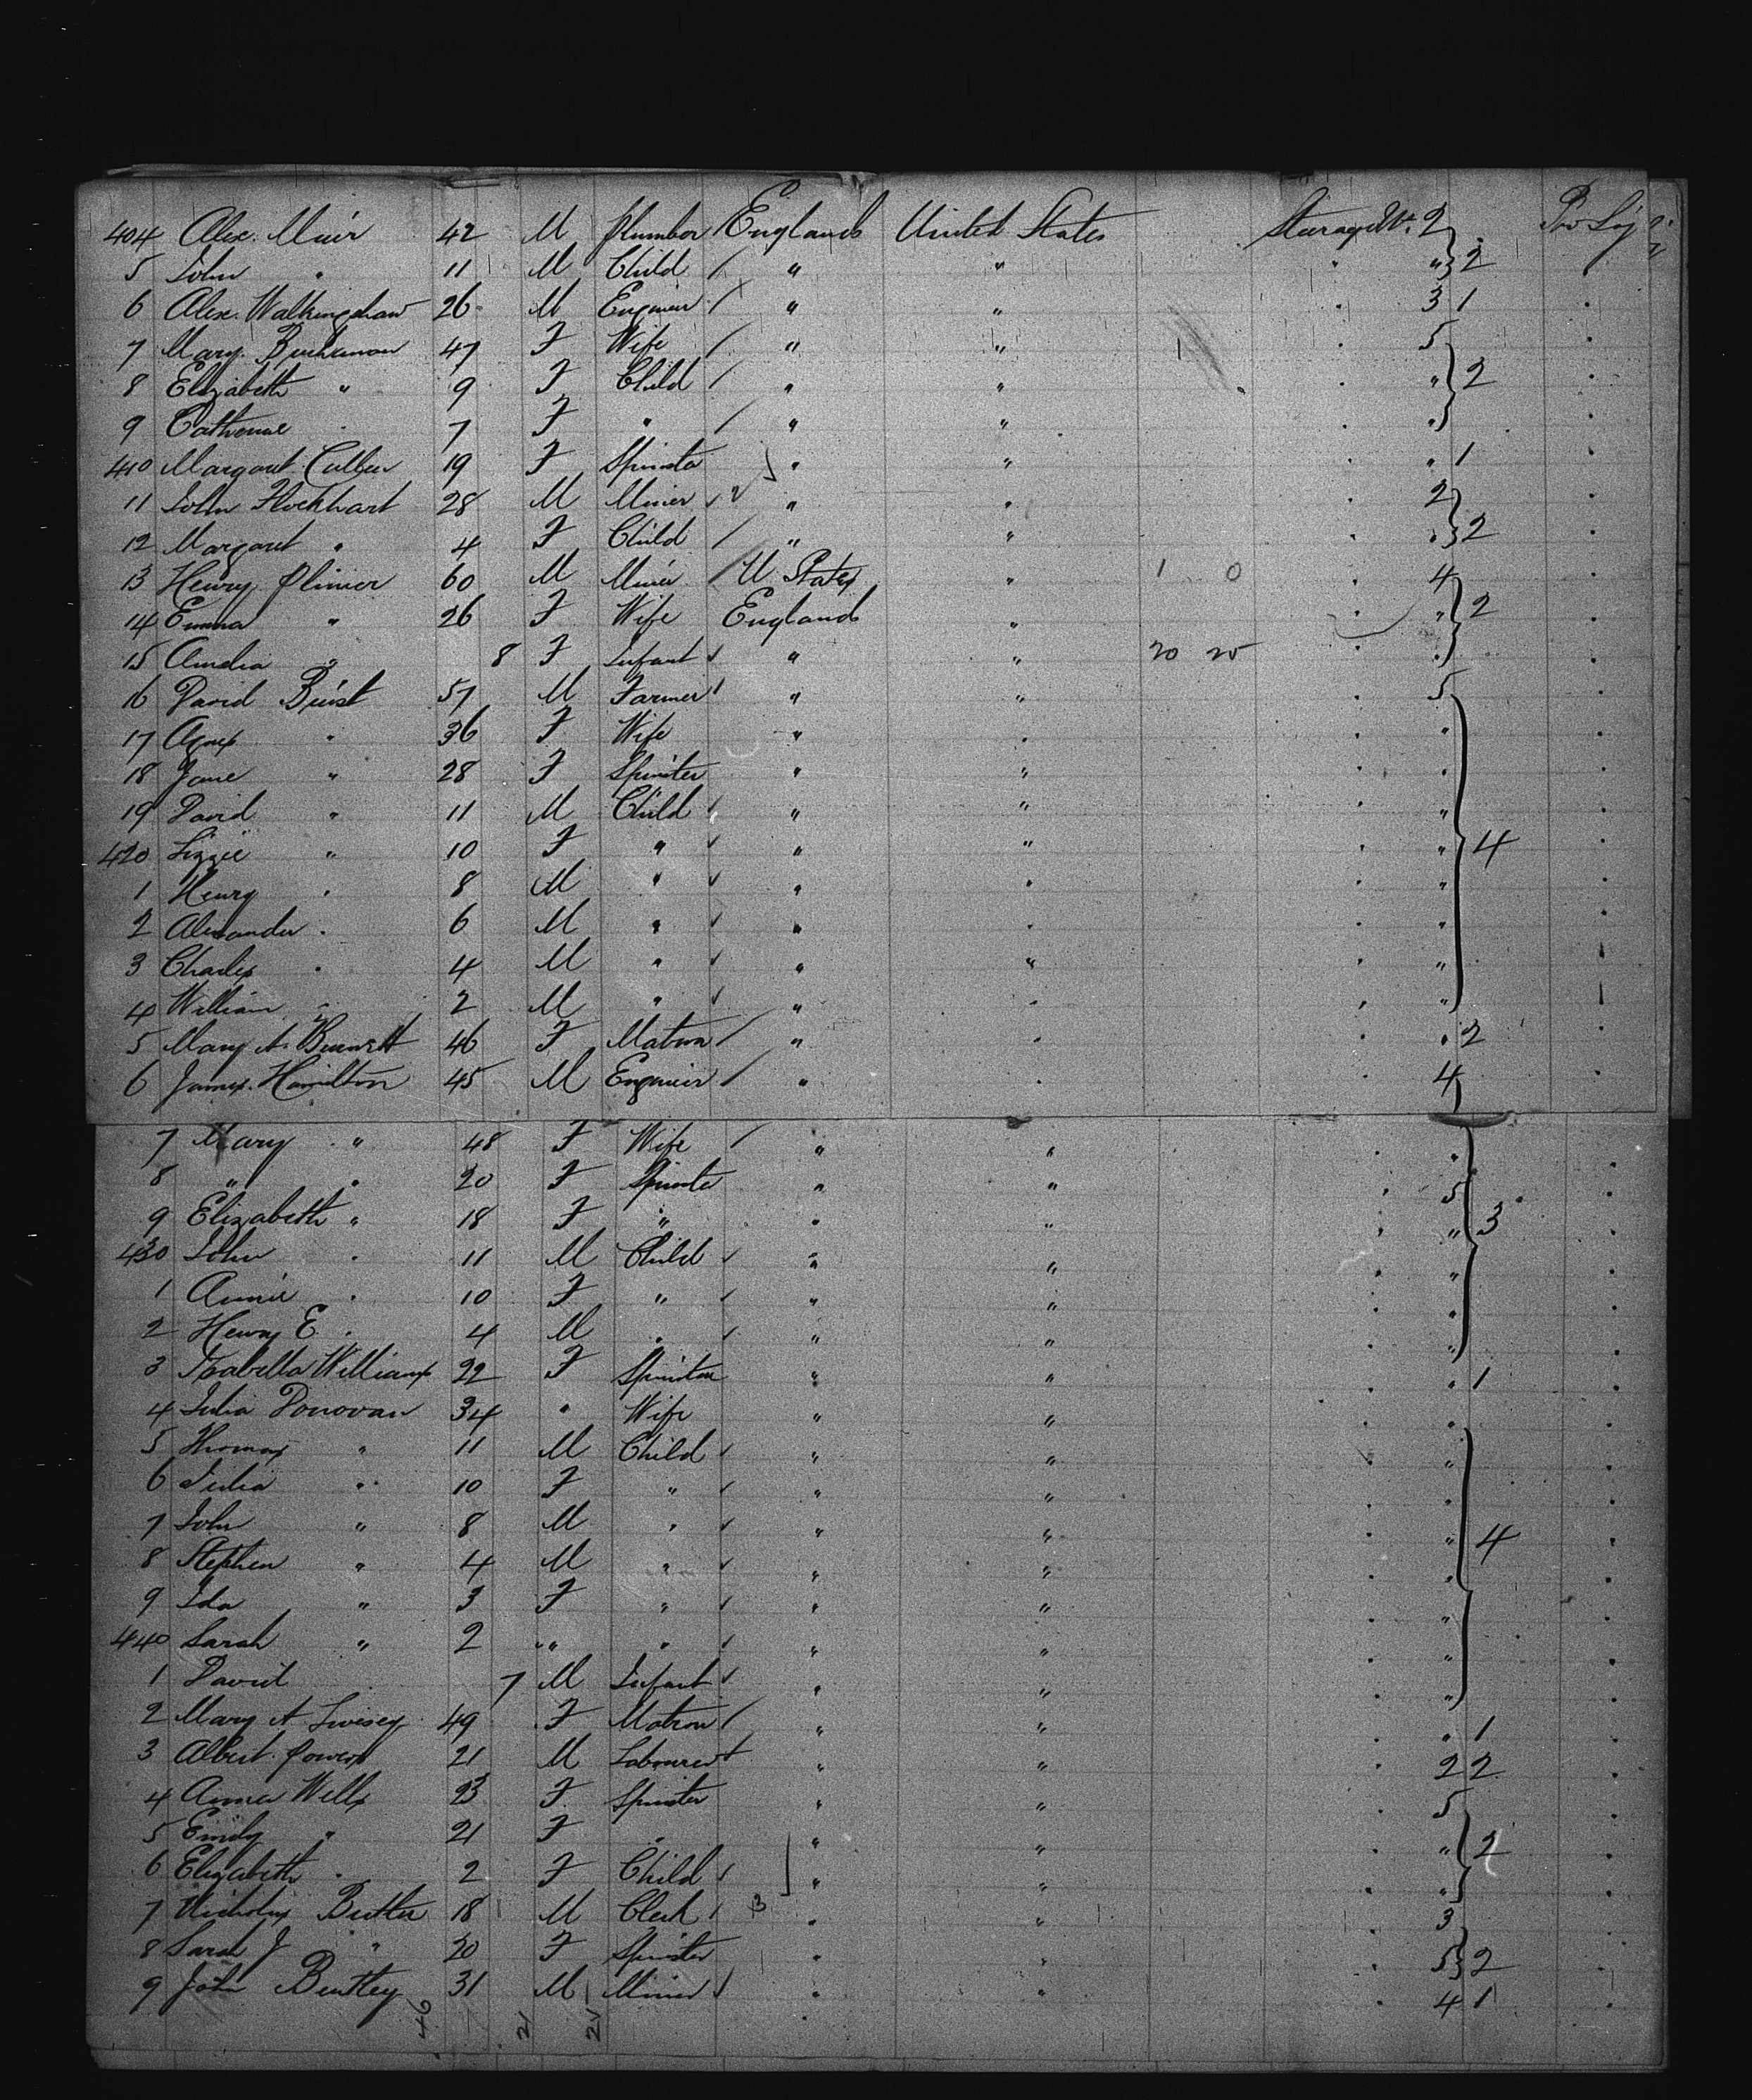 404 Alex. Muir 42 M Plumber England United States Steerage 2 2
5 John " 11 M Child / " " " " 2
6 Alex. Walkingshaw 26 M Engineer / " " " 3 1
7 Mary Buchanan 47 F Wife / " " " 5
8 Elizabeth " 9 F Child / " " " " 2
9 Catherine " 7 F " / " " " "
410 Margaret Cullen 19 F Spinster " " " " 1
11 John Flockhart 28 M Miner " " " 2
12 Margaret " 4 F Child / " " " " 2
13 Henry Plimer 60 M Miner / U States " 1 0 " 4
14 Emma " 26 F Wife England " " " 2
15 Amelia " 8 F Infant " " 20 25 " "
16 David Buist 57 M Farmer " " " 5
17 Agnes " 36 F Wife " " " "
18 Jane " 28 F Spinster " " " "
19 David " 11 M Child " " " "
420 Lizzie " 10 F " " " " " 4
1 Henry " 8 M " " " " "
2 Alexander " 6 M " " " " "
3 Charles " 4 M " " " " "
4 William " 2 M " " " " "
5 Mary A. 46 F Matron / " " " " 2
6 James Hamilton 45 M Engineer / " " " 4
7 Mary " 48 F Wife / " " " "
8 " " 20 F Spinster " " " 5
9 Elizabeth " 18 F " " " " " 3
430 John " 11 M Child " " " "
1 Annie " 10 F " " " " "
2 Henry E. " 4 M " " " " "
3 Isabella Williams 22 F Spinster " " " " 1
4 Julia Donovan 34 " Wife " " " "
5 Thomas " 11 M Child " " " "
6 Julia " 10 F " " " " "
7 John " 8 M " " " " " 4
8 Stephen " 4 M " " " " "
9 Ida " 3 F " " " " "
440 Sarah " 2 " " " " " "
1 David " 7 M Infant " " " "
2 Mary A Livesey 49 F Matron / " " " " 1
3 Albert Powers 21 M Labourer " " " 2 2
4 Annie Wells 23 F Spinster " " " 5
5 Emily " 21 F " " " " " 2
6 Elizabeth " 2 F Child " " " "
7 Nicholas Butler 18 M Clerk 3 " " " 3
8 Sarah J " 20 F Spinster " " " 5 2
9 John Bentley 31 M Miner " " " 4 1
46 21 25